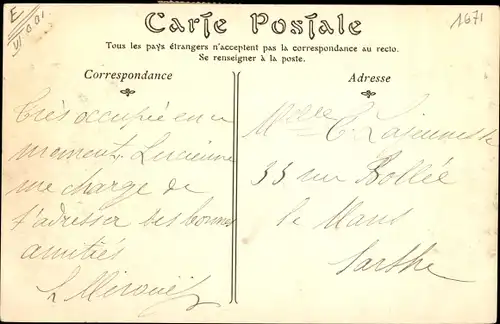 E
VI 0.01
1671
Carte Postale
Tous les pays étrangers n'acceptent pas la correspondance au recto.
Se renseigner à la poste.
Correspondance
Très occupée en ce
moment, Lucienne
me charge de
t'adresser ses bonnes
amitiés
Adresse
Melle
33 rue Bollée
Le Mans
Sarthe